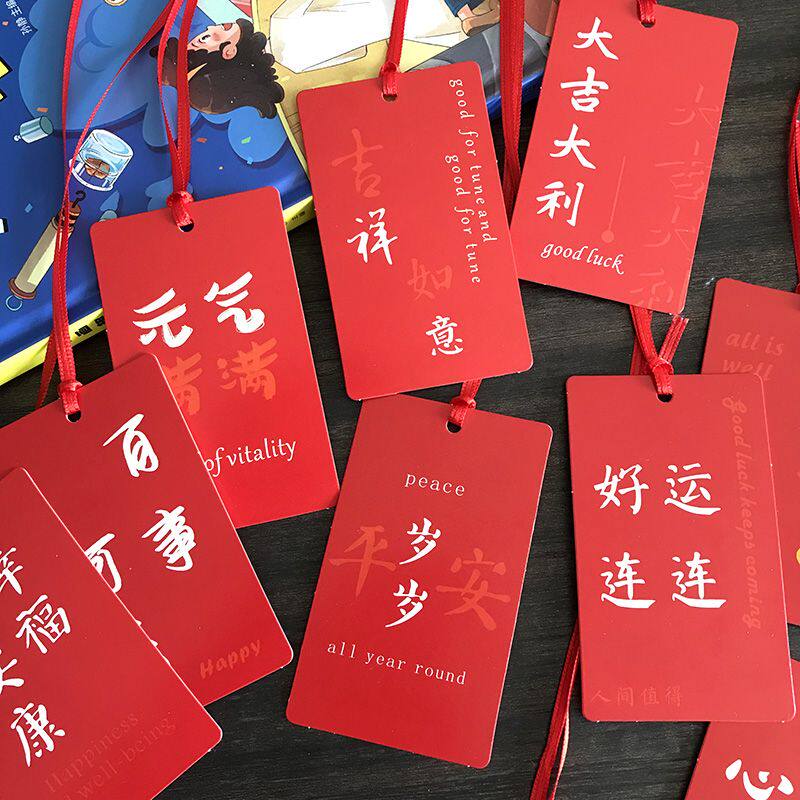 大吉大利
good luck
吉祥如意
good for tune and
good for tune
元气
满满
of vitality
百事
可
Happy
幸福
康
Happiness
well-being
peace
平安
岁岁
all year round
好运
连连
Good luck keeps coming
人间值得
all is
well
心